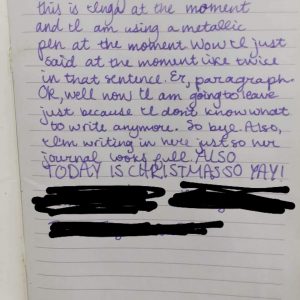 this is Inga at the moment
and I am using a metallic
pen at the moment Wow I just
said at the moment like twice
in that sentence. Er, paragraph.
OK, well now I am going to leave
just because I don't know what
to write anymore. So bye. Also,
I'm writing in here just so her
journal looks full. ALSO
TODAY IS CHRISTMAS SO YAY!